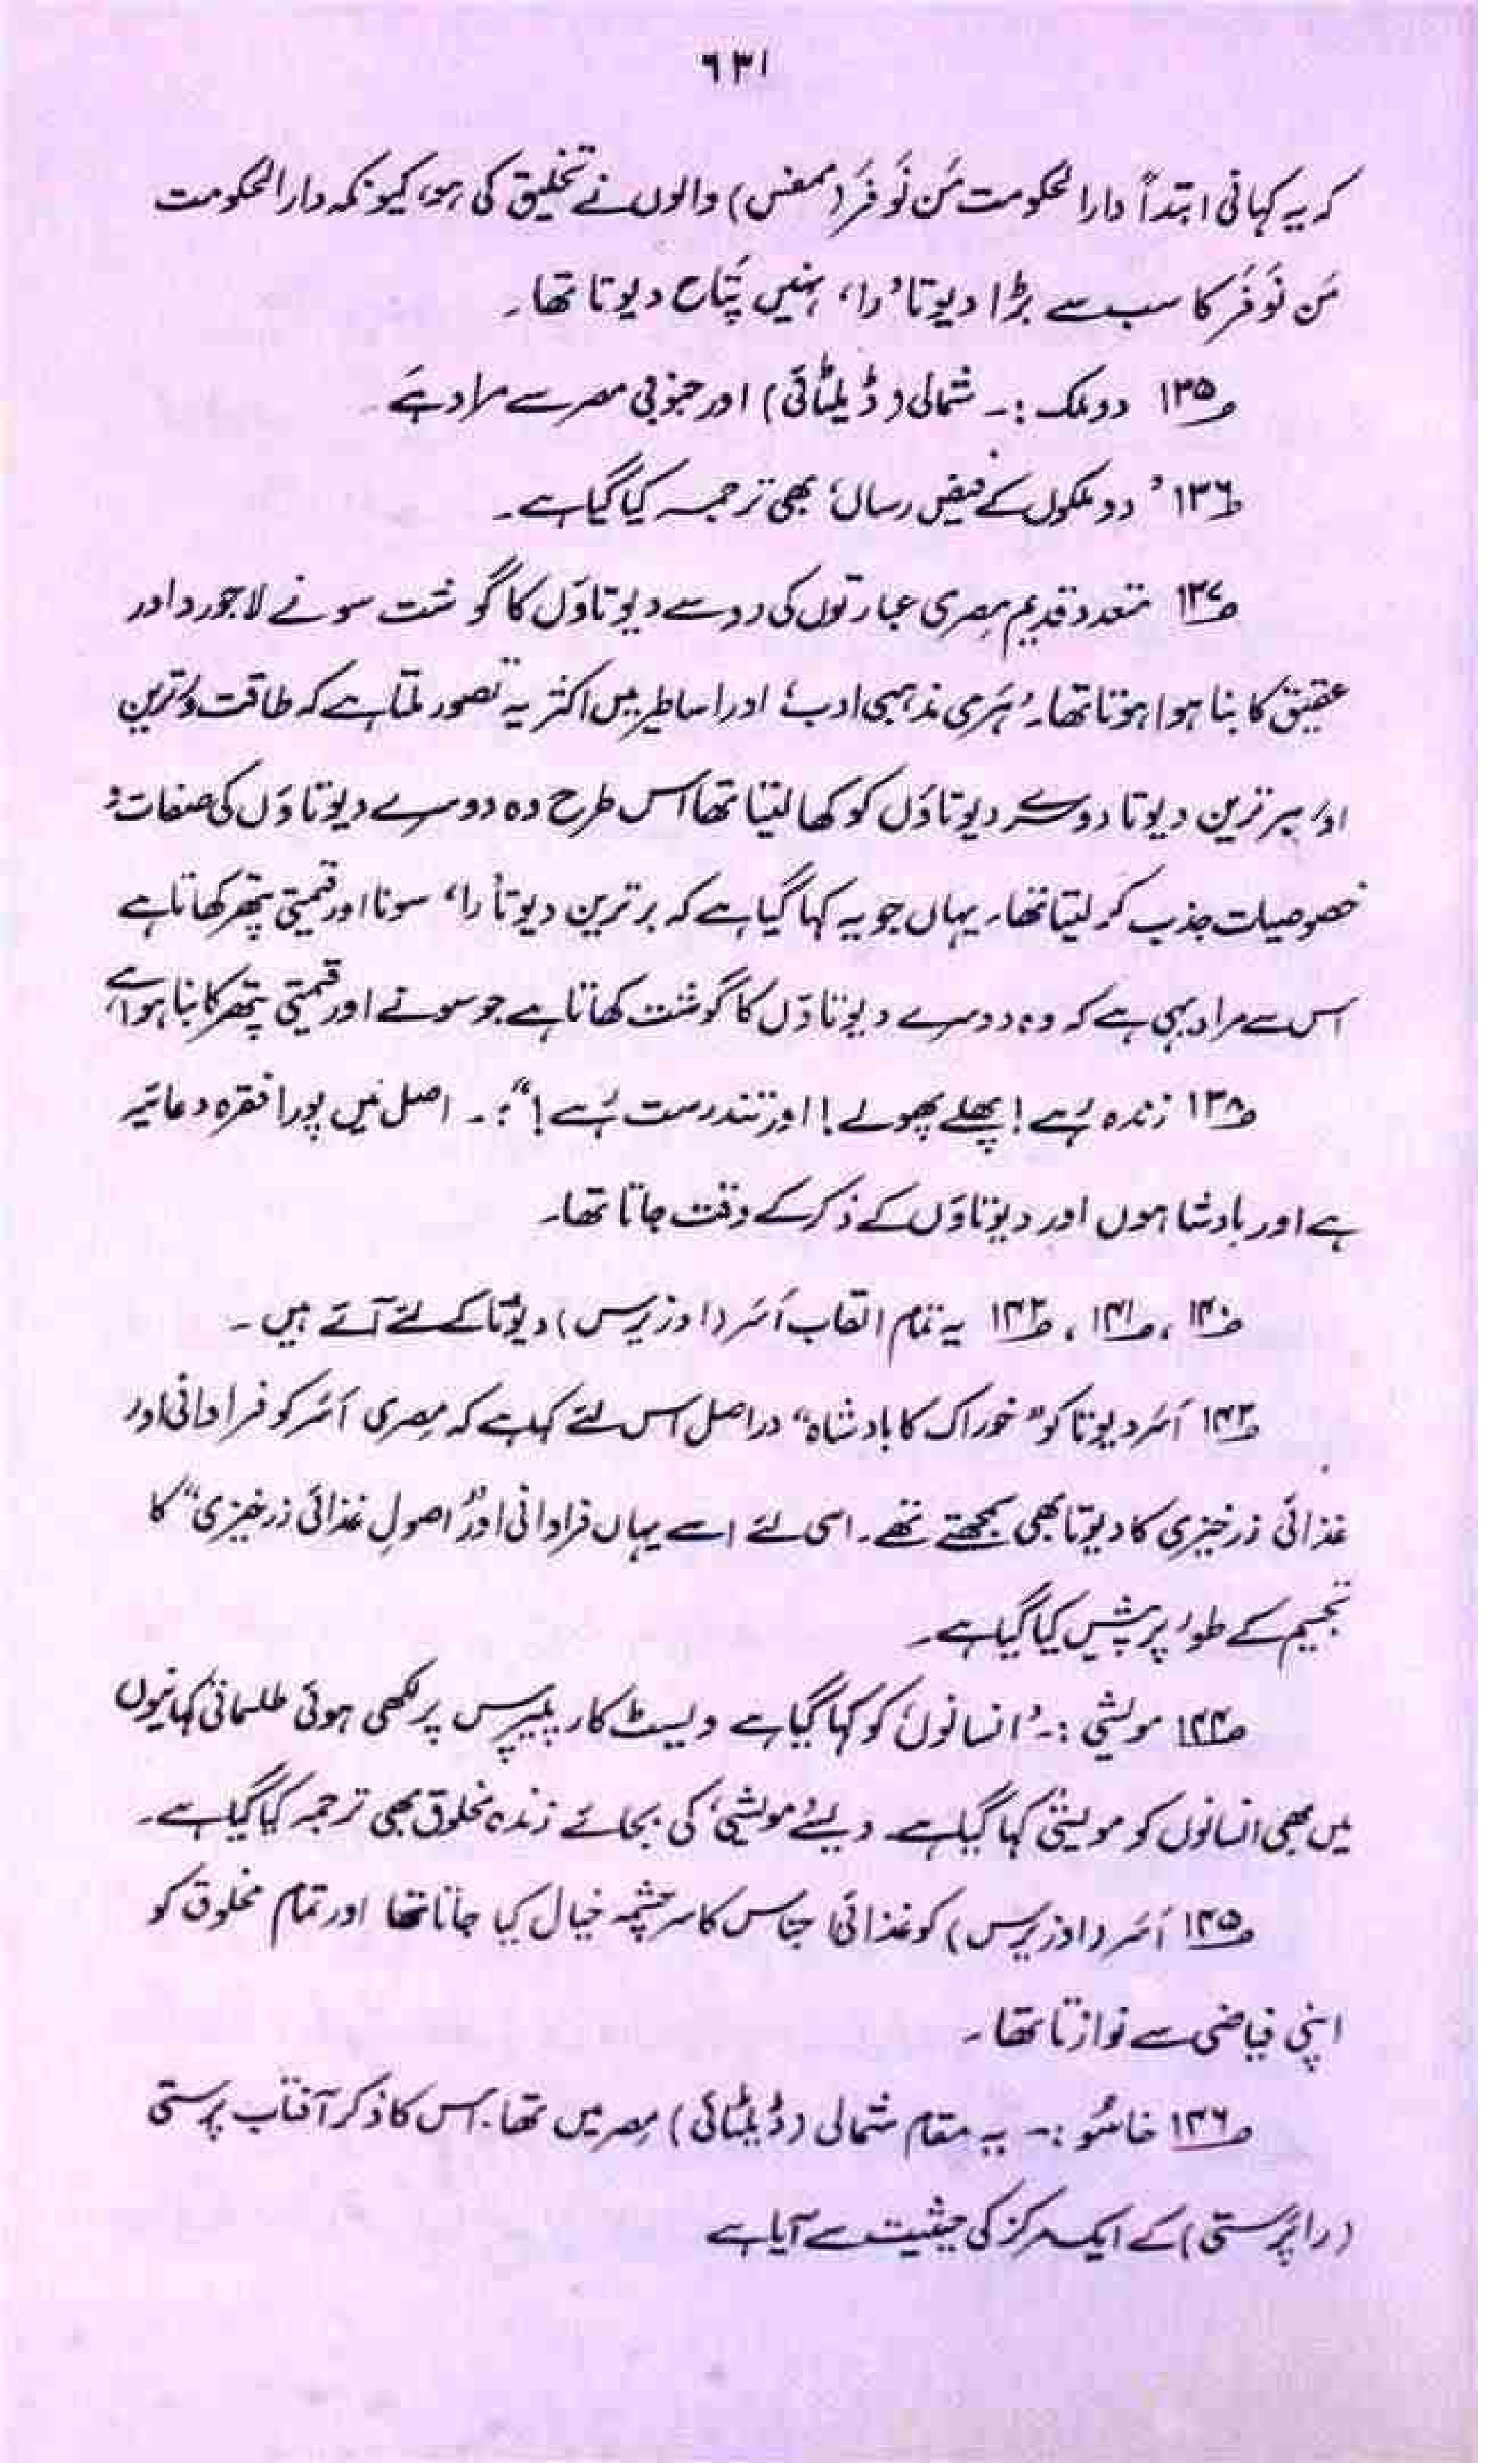 ٦٣١
کہ یہ کہانی ابتداً دارالحکومت مَن نَوفَر (ممفس) والوں نے تخلیق کی ہو، کیونکہ دارالحکومت
مَن نَوفَر کا سب سے بڑا دیوتا ’را‘ نہیں پَتاح دیوتا تھا۔
ص١٣۵ دو ملک :۔ شمالی (ڈیلٹائی) اور جنوبی مصر سے مراد ہے۔
ص١٣٦ ’دو ملکوں کے فیض رساں‘ بھی ترجمہ کیا گیا ہے۔
ص١٣۷ متعدد قدیم مصری عبارتوں کی رو سے دیوتاؤں کا گوشت سونے لاجورد اور
عقیق کا بنا ہوا ہوتا تھا۔ ’ہَرَمی مذہبی ادب‘ اور اساطیر میں اکثر یہ تصور ملتا ہے کہ طاقت ور ترین
اور برترین دیوتا دوسرے دیوتاؤں کو کھا لیتا تھا اس طرح وہ دوسرے دیوتاؤں کی صفات و
خصوصیات جذب کر لیتا تھا۔ یہاں جو یہ کہا گیا ہے کہ برترین دیوتا ’را‘ سونا اور قیمتی پتھر کھاتا ہے
اس سے مراد یہی ہے کہ وہ دوسرے دیوتاؤں کا گوشت کھاتا ہے جو سونے اور قیمتی پتھر کا بنا ہوا ہے
ص١٣۸ زندہ رہے! پھلے پھولے! اور تندرست رہے!“ :۔ اصل میں پورا فقرہ دعائیہ
ہے اور بادشاہوں اور دیوتاؤں کے ذکر کے وقت جاتا تھا۔
ص١۴۰، ص١۴١، ص١۴۲ یہ تمام القاب اَسَر (اوزیرس) دیوتا کے لئے آتے ہیں۔
ص١۴٣ اَسَر دیوتا کو ”خوراک کا بادشاہ“ دراصل اس لئے کہا ہے کہ مصری اَسَر کو فراوانی اور
غذائی زرخیزی کا دیوتا بھی سمجھتے تھے۔ اسی لئے اسے یہاں فراوانی اور ”اصولِ غذائی زرخیزی“ کا
تجسیم کے طور پر پیش کیا گیا ہے۔
ص١۴۴ مویشی :۔ ’انسانوں‘ کو کہا گیا ہے ویسٹ کار پیپرس پر لکھی ہوئی طلسماتی کہانیوں
میں بھی انسانوں کو مویشی کہا گیا ہے۔ ویسے ’مویشی‘ کی بجائے زندہ مخلوق بھی ترجمہ کیا گیا ہے۔
ص١۴۵ اَسَر (اوزیرس) کو غذائی اجناس کا سرچشمہ خیال کیا جاتا تھا اور تمام مخلوق کو
اپنی فیاضی سے نوازتا تھا۔
ص١۴٦ خاسُو :۔ یہ مقام شمالی (ڈیلٹائی) مصر میں تھا۔ اس کا ذکر آفتاب پرستی
(را پرستی) کے ایک مرکز کی حیثیت سے آیا ہے